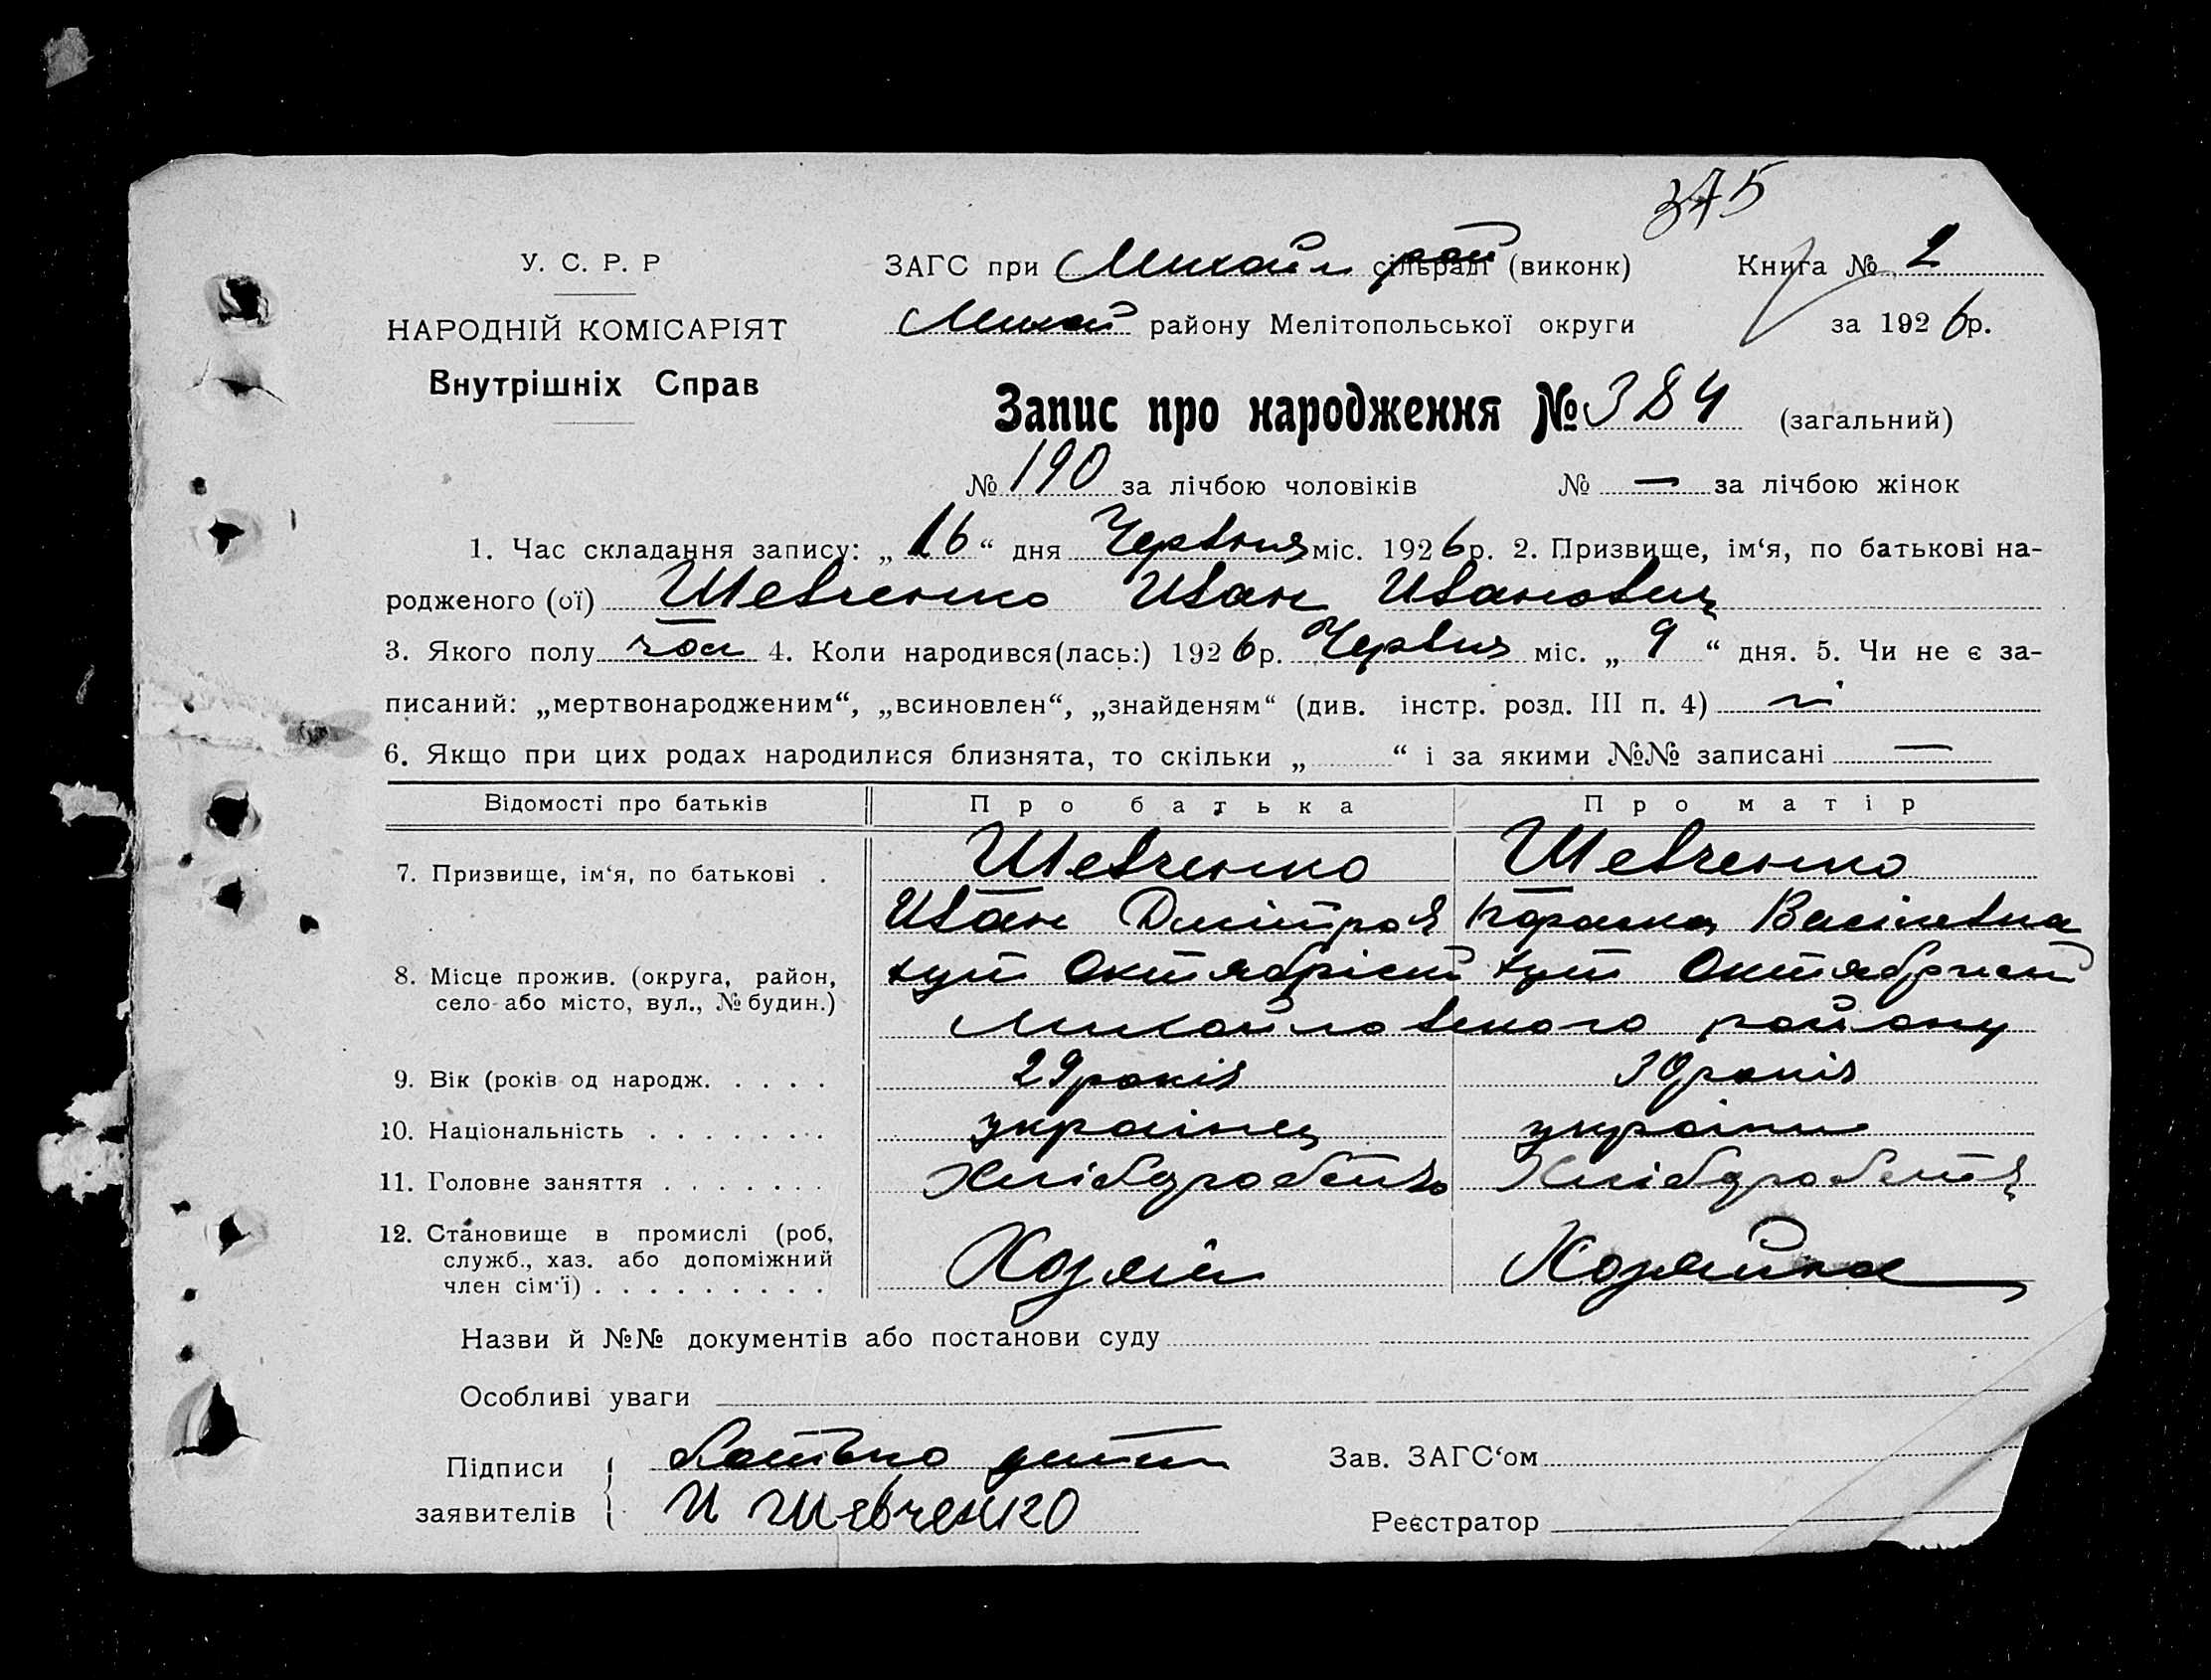 375
У. С. Р. Р
НАРОДНІЙ КОМІСАРІЯТ
Внутрішніх Справ
ЗАГС при Михайл рай сільраді (виконк) Книга № 2
Михай району Мелітопольської округи за 1926р.
Запис про народження № 384 (загальний)
№ 190 за лічбою чоловіків № — за лічбою жінок
1. Час складання запису: „16“ дня Червня міс. 1926р. 2. Призвище, ім‘я, по батькові на-
родженого (ої) Шевченко Иван Иванович
3. Якого полу чол 4. Коли народився(лась:) 1926р. Червня міс. „9“ дня. 5. Чи не є за-
писаний: „мертвонародженим“, „всиновлен“, „знайденям“ (див. інстр. розд. III п. 4) ні
6. Якщо при цих родах народилися близнята, то скільки „ “ і за якими №№ записані —
Відомості про батьків Про батька Про матір
7. Призвище, ім‘я, по батькові . Шевченко Шевченко
Иван Дмітров Васілевна
8. Місце прожив. (округа, район, хут Октябріский хут Октябрский
село або місто, вул., № будин.)
Михайловского району
9. Вік (років од народж. . . . . 29 років 30 років
10. Національність . . . . . . . українец українк
11. Головне заняття . . . . . . . Хлібдробств Хлібдробств
12. Становище в промислі (роб,
служб., хаз. або допоміжний Хозяін Хозяйка
член сім‘ї) . . . . . . . . .
Назви й №№ документів або постанови суду
Особливі уваги
Підписи батько дити Зав. ЗАГС‘ом
заявителів И Шевченко Реєстратор